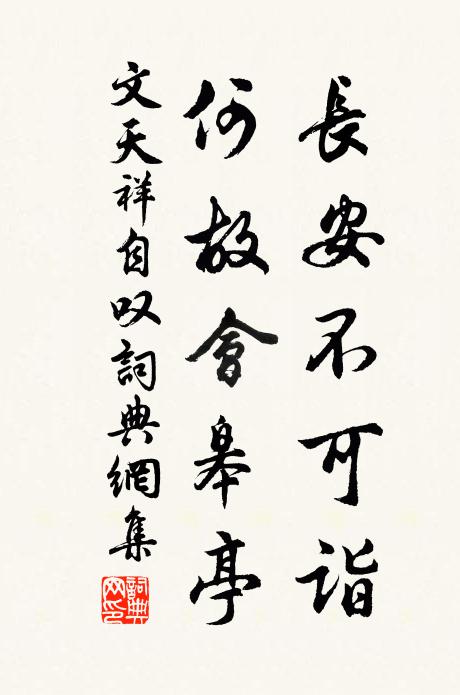 長安不可詣
何故會皋亭
文天祥自叹詞典網集
詞典網印